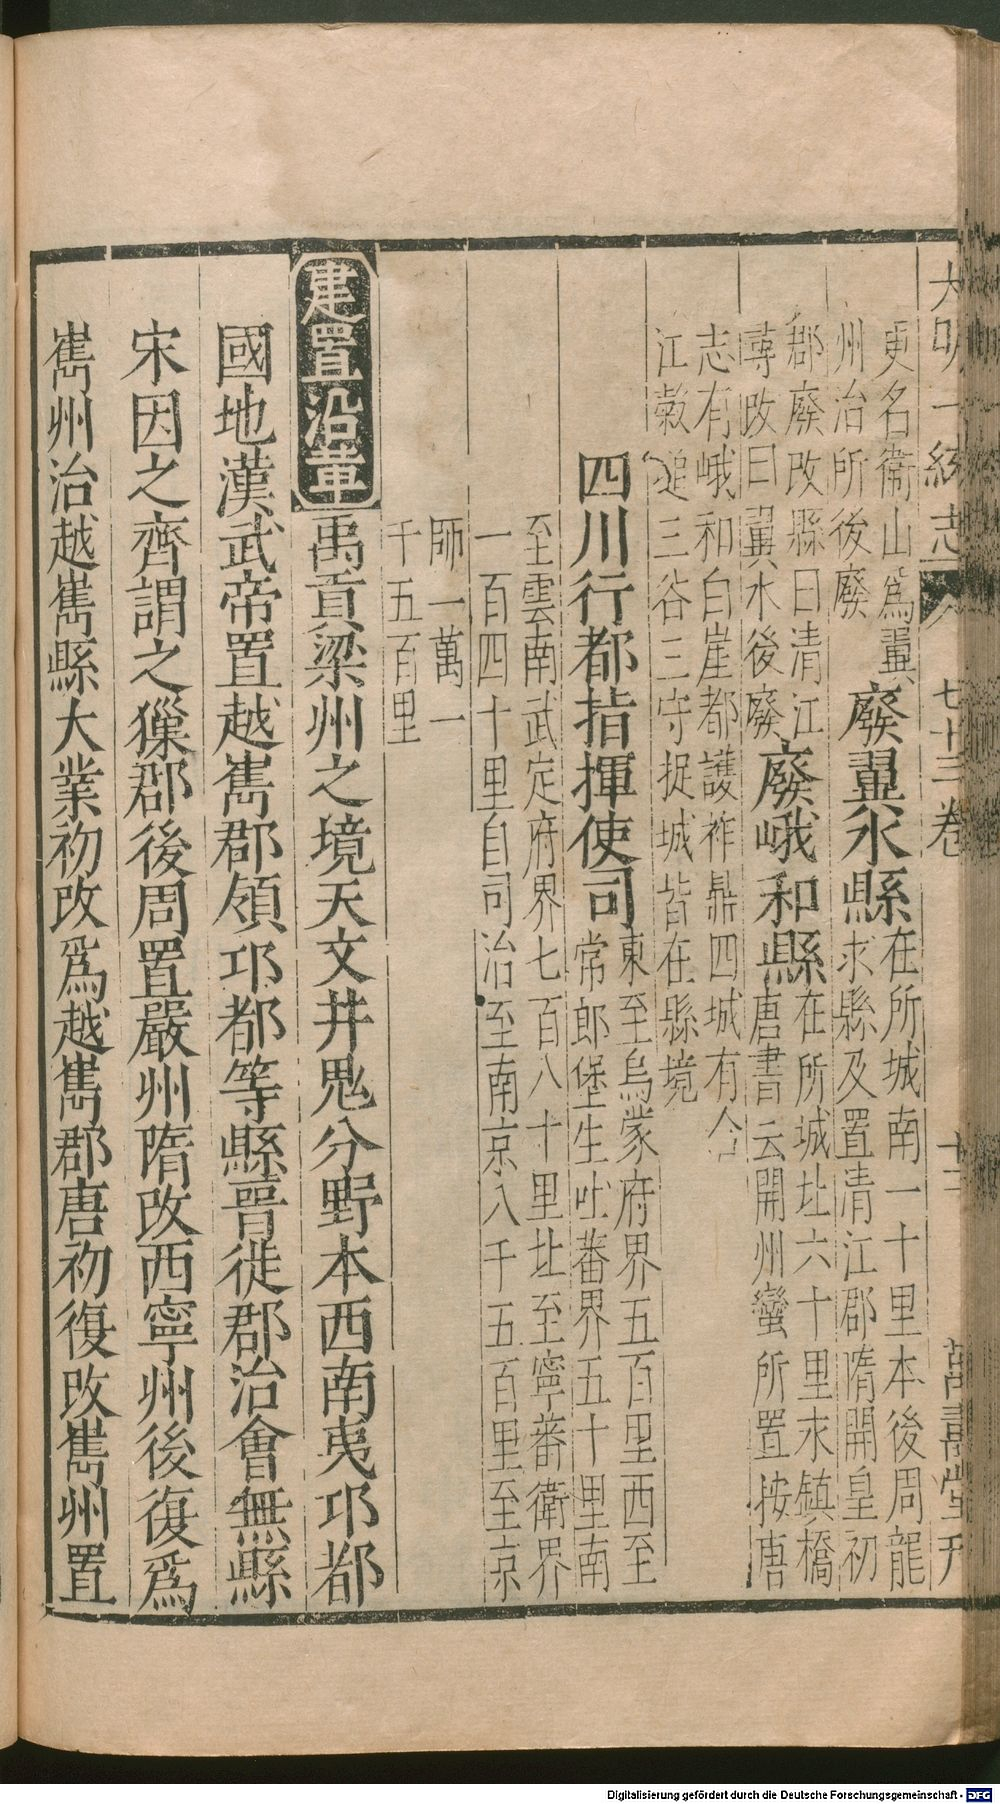 大明一統志 七十三卷 十二 萬壽堂刊
更名衛山為翼
州治所後廢
廢翼水縣
在所城南一十里本後周龍
求縣及置清江郡隋開皇初
郡廢改縣曰清江
蕁改曰翼水後廢
廢峨和縣
在所城北六十里求鎮橋
唐書云開州蠻所置按唐
志有峨和白崖都護祚鼎四城有合
江榖追三谷三守捉城皆在縣境
四川行都指揮使司
東至烏蒙府界五百里西至
常郎堡生吐蕃界五十里南
至雲南武定府界七百八十里北至寧番衛界
一百四十里自司治至南京八千五百里至京
師一萬一
千五百里
建置沿革
禹貢梁州之境天文井鬼分野本西南夷邛都
國地漢武帝置越嶲郡領邛都等縣晉徙郡治會無縣
宋因之齊謂之獠郡後周置嚴州隋改西寧州後復為
嶲州治越嶲縣大業初改為越嶲郡唐初復改嶲州置
Digitalisierung gefördert durch die Deutsche Forschungsgemeinschaft - DFG